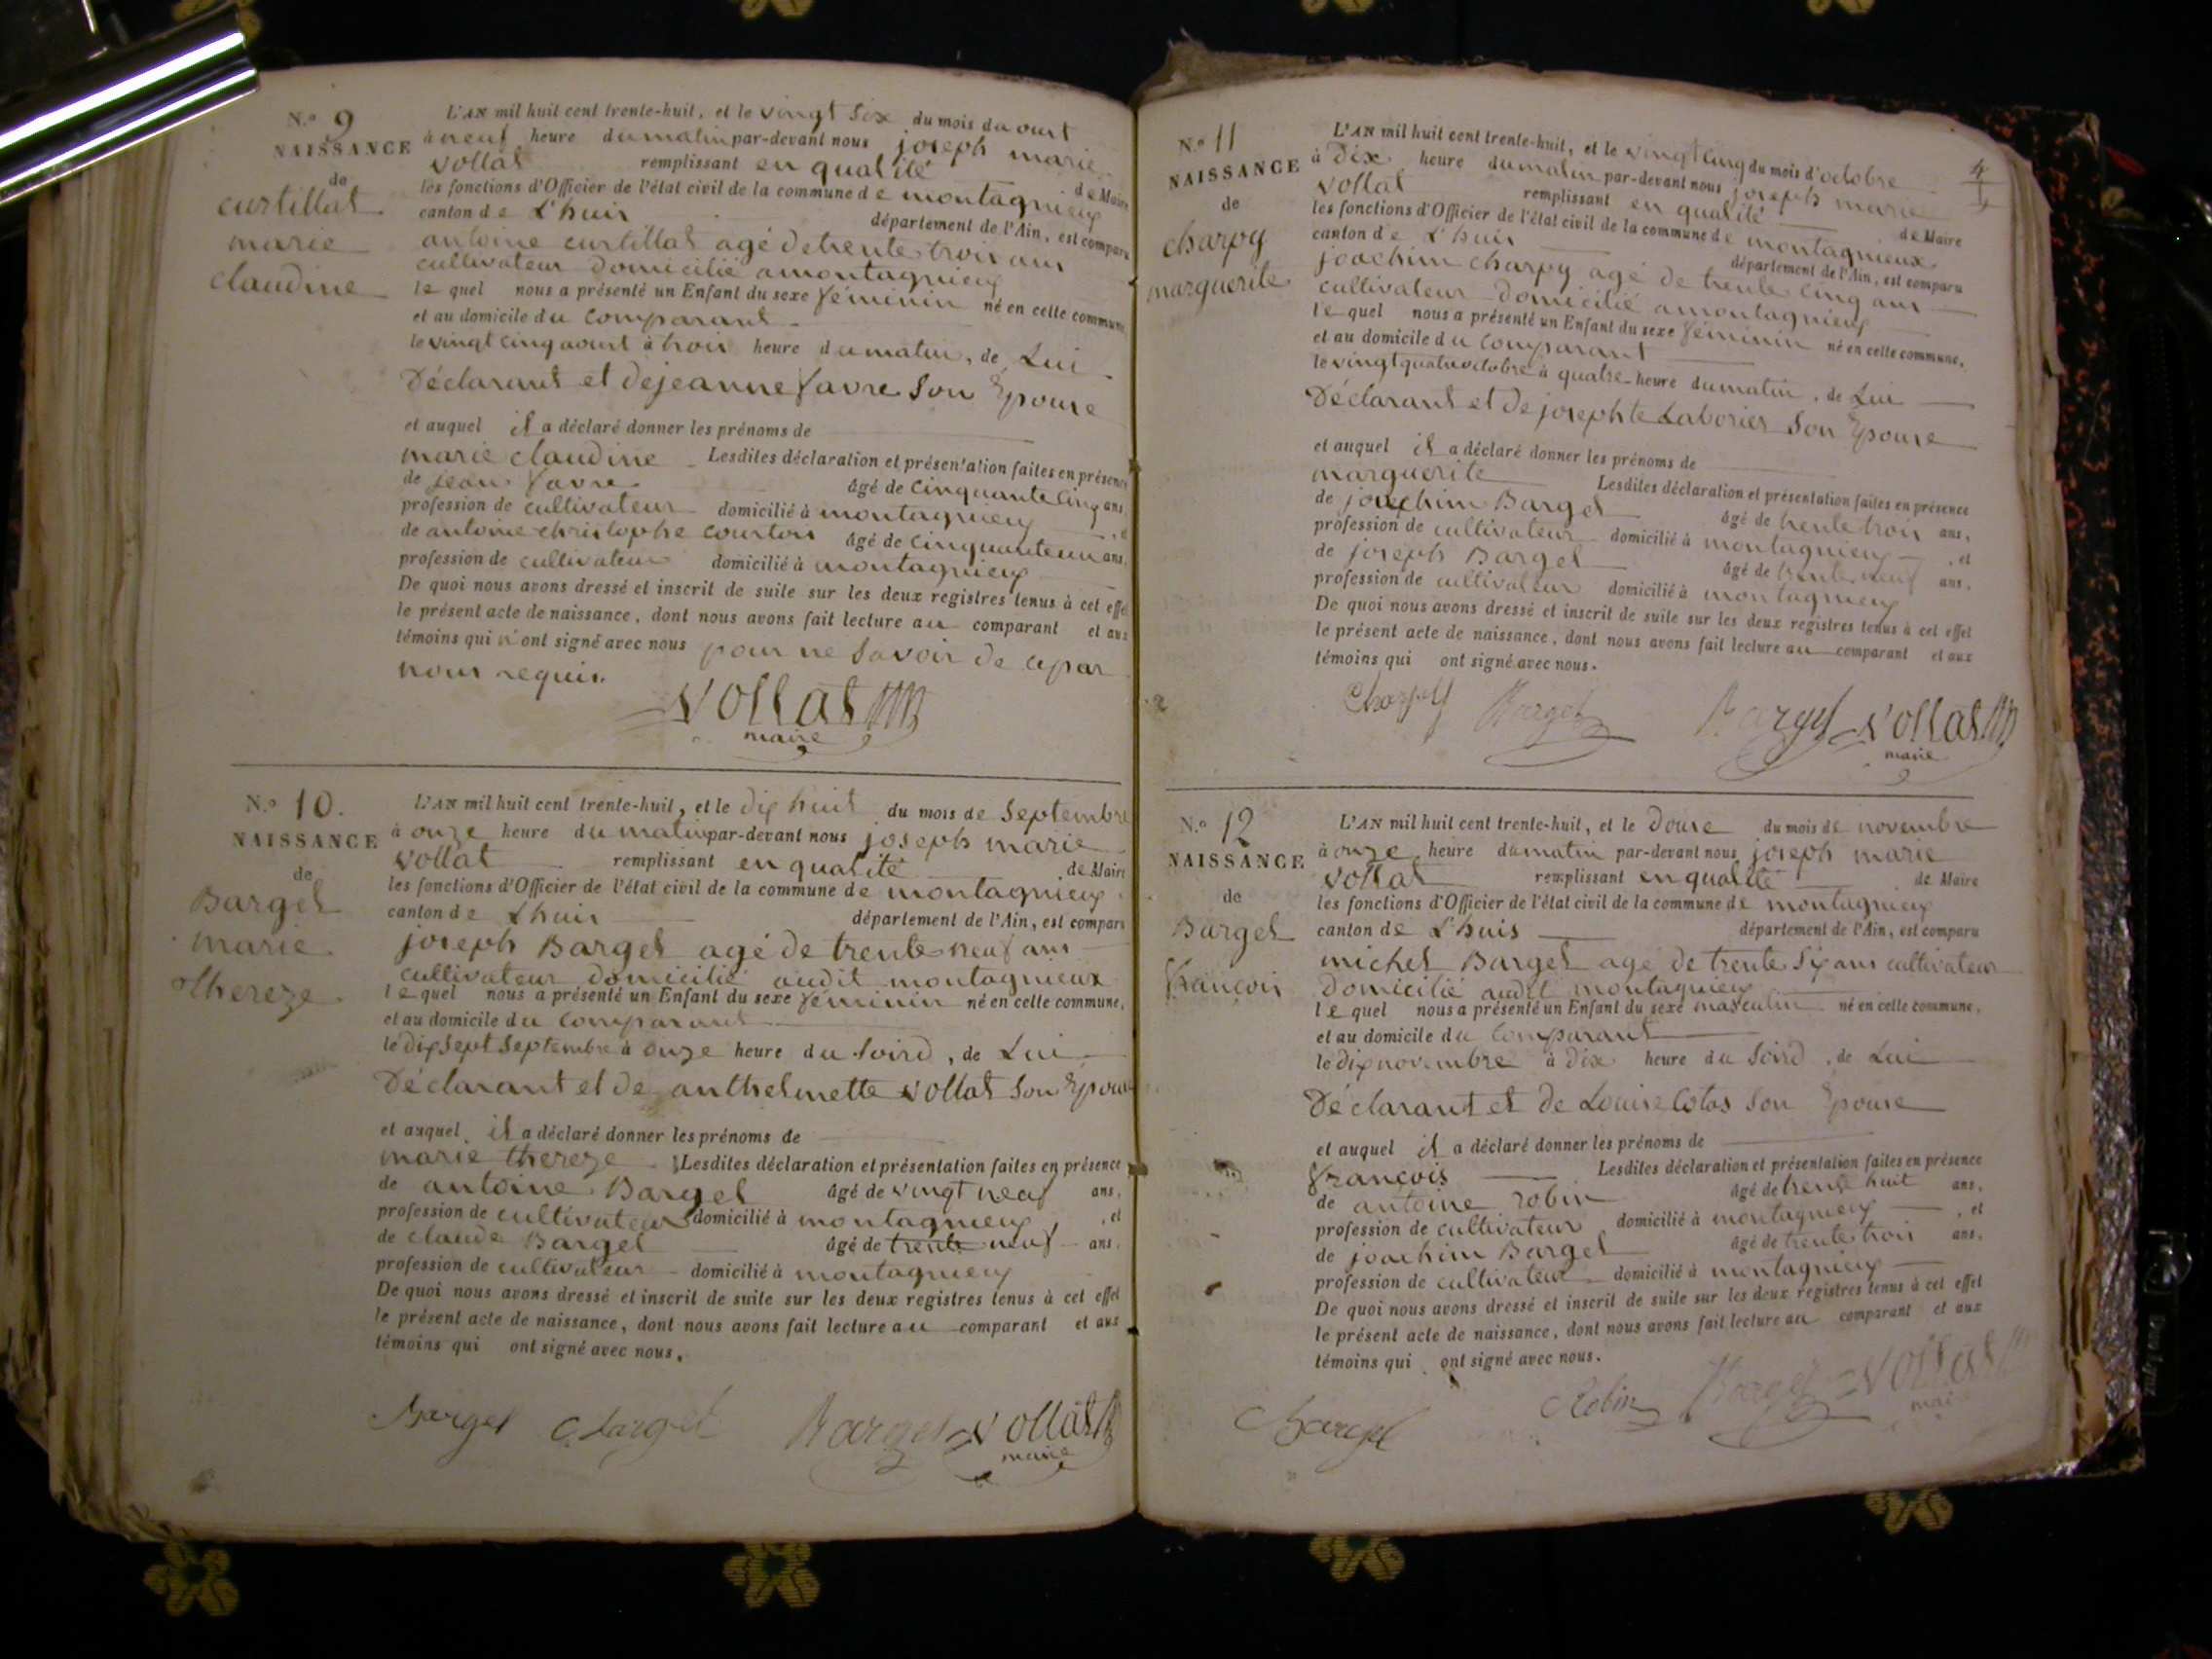 N.º 9
NAISSANCE
de
curtillat
marie
claudine
L'AN mil huit cent trente-huit, et le vingt six du mois daout
à neuf heure du matin par-devant nous joseph marie
vollat remplissant en qualité de Maire
les fonctions d'Officier de l'état civil de la commune de montagnieux
canton de L'huis département de l'Ain, est comparu
antoine curtillat agé de trente trois ans
cultivateur domicilié a montagnieux
le quel nous a présenté un Enfant du sexe féminin né en cette commune
et au domicile du comparant
le vingt cinq aout à trois heure du matin, de Lui
Déclarant et de jeanne favre Son Epouse
et auquel il a déclaré donner les prénoms de
marie claudine Lesdites déclaration et présentation faites en présence
de jean favre âgé de cinquante cinq ans,
profession de cultivateur domicilié à montagnieux, et
de antoine christophe courtois âgé de cinquante un ans,
profession de cultivateur domicilié à montagnieux
De quoi nous avons dressé et inscrit de suite sur les deux registres tenus à cet effet
le présent acte de naissance, dont nous avons fait lecture au comparant et aux
témoins qui n'ont signé avec nous pour ne Savoir de ce par
nous requis.
Vollat
maire
N.º 10.
NAISSANCE
de
Barget
marie
thereze
L'AN mil huit cent trente-huit, et le dix huit du mois de Septembre
à onze heure du matin par-devant nous joseph marie
vollat remplissant en qualité de Maire
les fonctions d'Officier de l'état civil de la commune de montagnieux
canton de Lhuis département de l'Ain, est comparu
joseph Barget agé de trente neuf ans
cultivateur domicilié audit montagnieux
le quel nous a présenté un Enfant du sexe féminin né en cette commune,
et au domicile du comparant
le dix sept Septembre à onze heure du soird, de Lui
Déclarant et de anthelmette vollat Son Epouse
et auquel il a déclaré donner les prénoms de
marie thereze Lesdites déclaration et présentation faites en présence
de antoine Barget âgé de vingt neuf ans,
profession de cultivateur domicilié à montagnieux, et
de claude Barget âgé de trente neuf ans,
profession de cultivateur domicilié à montagnieux
De quoi nous avons dressé et inscrit de suite sur les deux registres tenus à cet effet
le présent acte de naissance, dont nous avons fait lecture au comparant et aux
témoins qui ont signé avec nous.
Barget C. Barget Barget Vollat
maire
4
N.º 11
NAISSANCE
de
charpy
marguerite
L'AN mil huit cent trente-huit, et le vingt cinq du mois d'octobre
à Dix heure du matin par-devant nous joseph marie
vollat remplissant en qualité de Maire
les fonctions d'Officier de l'état civil de la commune de montagnieux
canton de L'huis département de l'Ain, est comparu
joachim charpy agé de trente cinq ans
cultivateur Domicilié a montagnieux
le quel nous a présenté un Enfant du sexe féminin né en cette commune,
et au domicile du comparant
le vingt quatre octobre à quatre heure du matin, de Lui
Déclarant et de josephte Laborier Son Epouse
et auquel il a déclaré donner les prénoms de
marguerite Lesdites déclaration et présentation faites en présence
de joachim Barget âgé de trente trois ans,
profession de cultivateur domicilié à montagnieux, et
de joseph Barget âgé de trente neuf ans,
profession de cultivateur domicilié à montagnieux
De quoi nous avons dressé et inscrit de suite sur les deux registres tenus à cet effet
le présent acte de naissance, dont nous avons fait lecture au comparant et aux
témoins qui ont signé avec nous.
Charpy Barget Barget Vollat
maire
N.º 12
NAISSANCE
de
Barget
françois
L'AN mil huit cent trente-huit, et le Douse du mois de novembre
à onze heure du matin par-devant nous joseph marie
vollat remplissant en qualité de Maire
les fonctions d'Officier de l'état civil de la commune de montagnieux
canton de L'huis département de l'Ain, est comparu
michel Barget agé de trente Six ans cultivateur
Domicilié audit montagnieux
le quel nous a présenté un Enfant du sexe masculin né en cette commune,
et au domicile du comparant
le dix novembre à Dix heure du Soird, de Lui
Déclarant et de Louise Cotos Son Epouse
et auquel il a déclaré donner les prénoms de
françois Lesdites déclaration et présentation faites en présence
de antoine robin âgé de trente huit ans,
profession de cultivateur domicilié à montagnieux, et
de joachim Barget âgé de trente trois ans,
profession de cultivateur domicilié à montagnieux
De quoi nous avons dressé et inscrit de suite sur les deux registres tenus à cet effet
le présent acte de naissance, dont nous avons fait lecture au comparant et aux
témoins qui ont signé avec nous.
Barget Robin Barget Vollat
maire